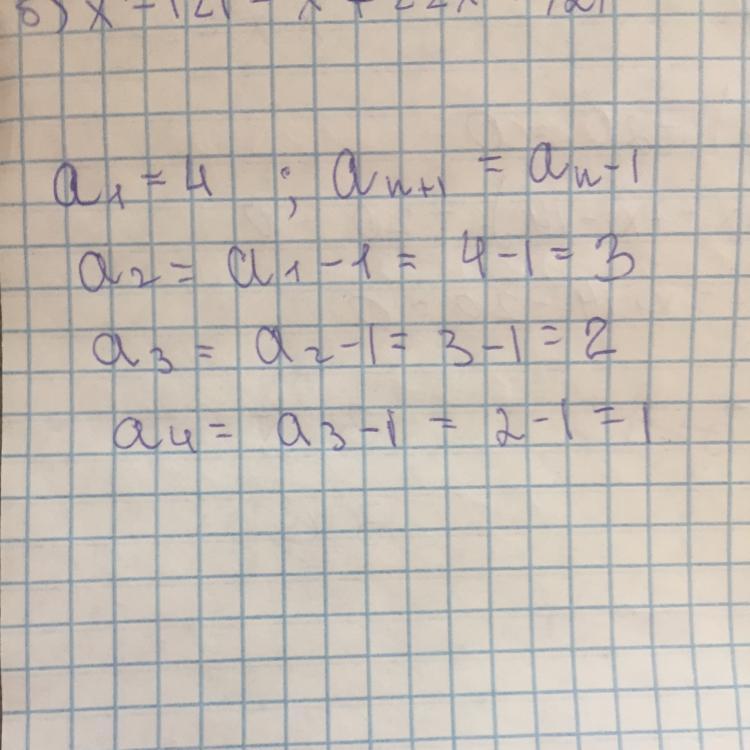 a₁ = 4 ; aₙ₊₁ = aₙ - 1
a₂ = a₁ - 1 = 4 - 1 = 3
a₃ = a₂ - 1 = 3 - 1 = 2
a₄ = a₃ - 1 = 2 - 1 = 1